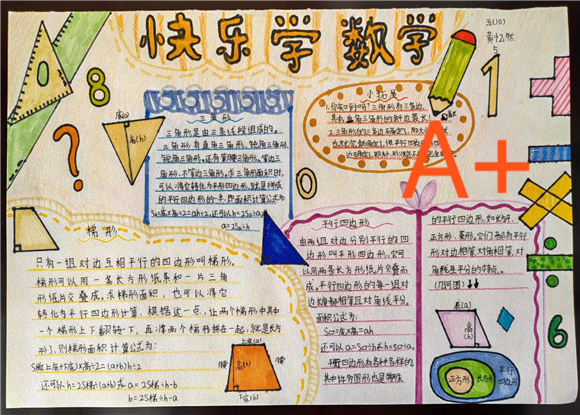 快乐学数学
五(10)
8
1
A+
三角形
三角形是由三条线段组成的。
三角形有直角三角形、锐角三角形、
钝角三角形，还有等腰三角形、等边三
角形、不等边三角形。求三角形面积时，
可以将它转化为平行四边形，就是拼成
的平行四边形的一半，即面积计算公式为
S=底×高÷2=ah÷2，还可以h=2S÷a
a=2S÷h
底(a)
高(h)
?
小拓展
0
梯形
只有一组对边互相平行的四边形叫梯形。
梯形可以用一条长方形纸条和一片三角
形纸片交叠成，求梯形面积，也可以将它
转化为平行四边形计算，根据这一点，让两个梯形中其中
一个梯形上下翻转一下，再将两个梯形拼在一起，就是长方
形了，则梯形面积计算公式为：
S=(上底+下底)×高÷2=(a+b)×h÷2
还可以h=2S÷(a+b)或a=2S÷h-b
b=2S÷h-a
上底(a)
腰
高(h)
腰
下底(b)
平行四边形
由两组对边分别平行的四
边形叫平行四边形，它可
以用两条长方形纸片交叠而
成。平行四边形的每一组对
边长度都相等且对角线平分。
面积公式为：
S=底×高=ah
还可以a=S÷h或h=S÷a。
平行四边形有各种各样的，
其中比如图形也是特殊
的平行四边形，如长方形、
正方形、菱形。它们都有平行
形对边相等对角相等，对
角线互相平分的特点。
(几何图)↓↓
底(a)
高(h)
正方形
长方形
平行四边形
6